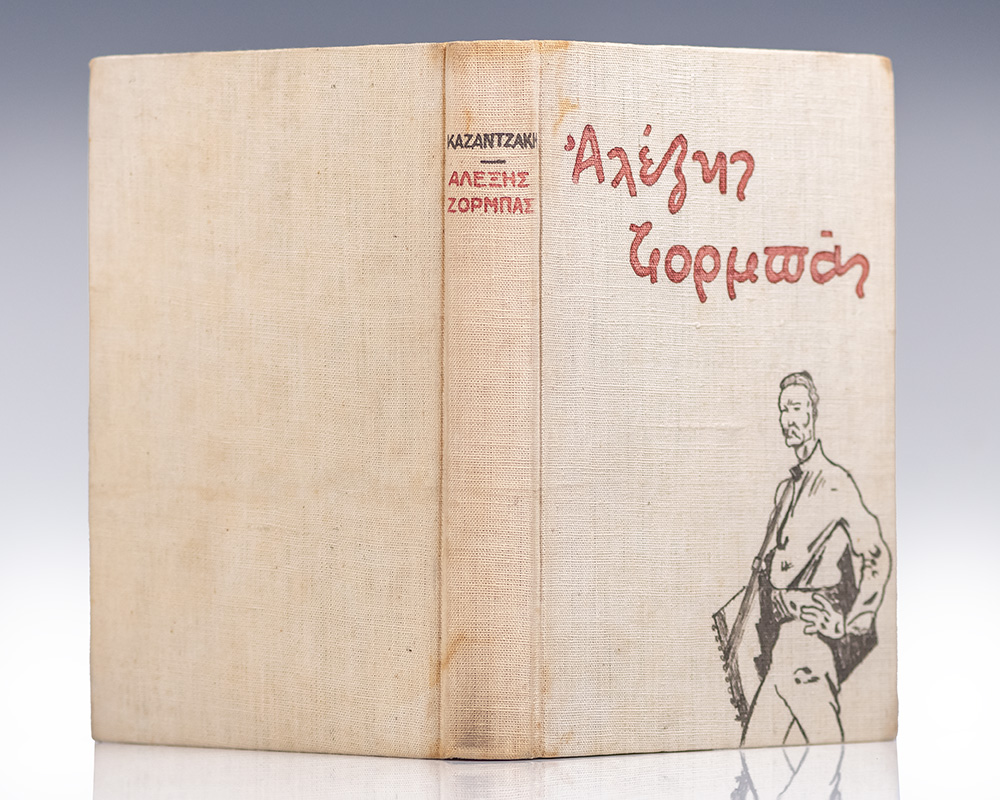 ΚΑΖΑΝΤΖΑΚΗ
ΑΛΕΞΗΣ
ΖΟΡΜΠΑΣ
Ἀλέξης
Ζορμπᾶς